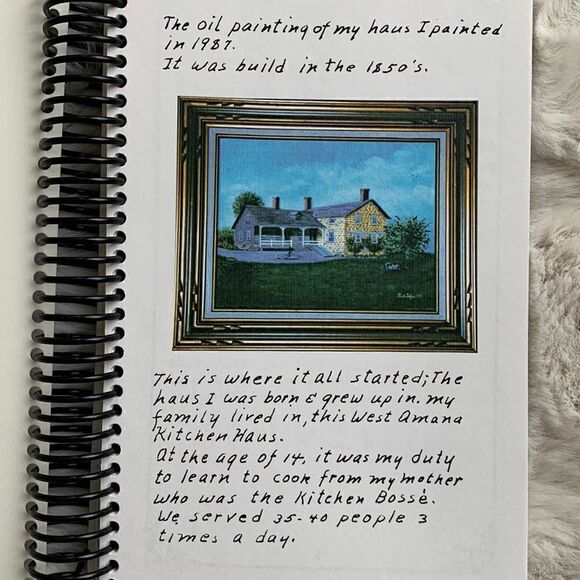 The oil painting of my haus I painted
in 1987.
It was build in the 1850's.
This is where it all started; The
haus I was born & grew up in. my
family lived in, this West Amana
Kitchen Haus.
At the age of 14, it was my duty
to learn to cook from my mother
who was the Kitchen Bossé.
We served 35-40 people 3
times a day.